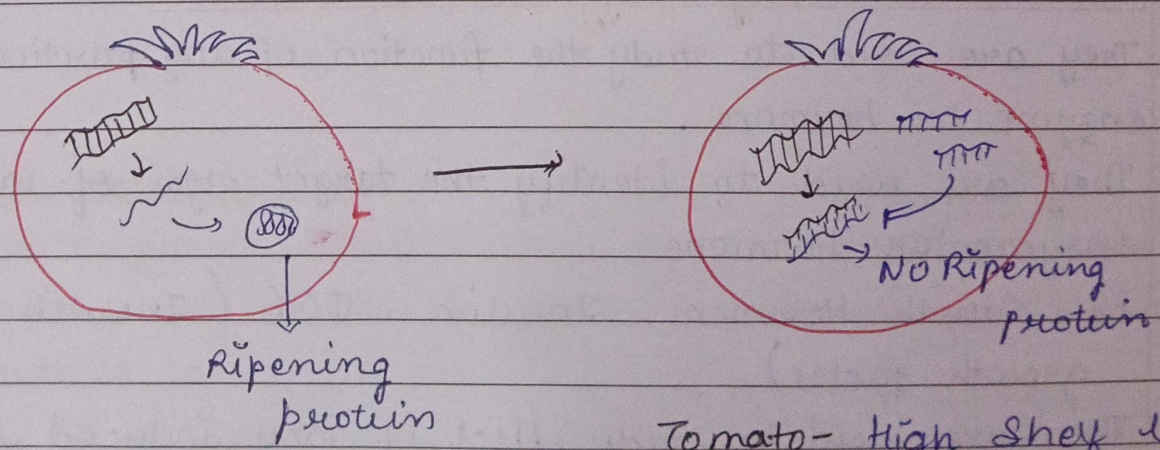 NO Ripening
protein
Ripening
protein
Tomato- High Shelf